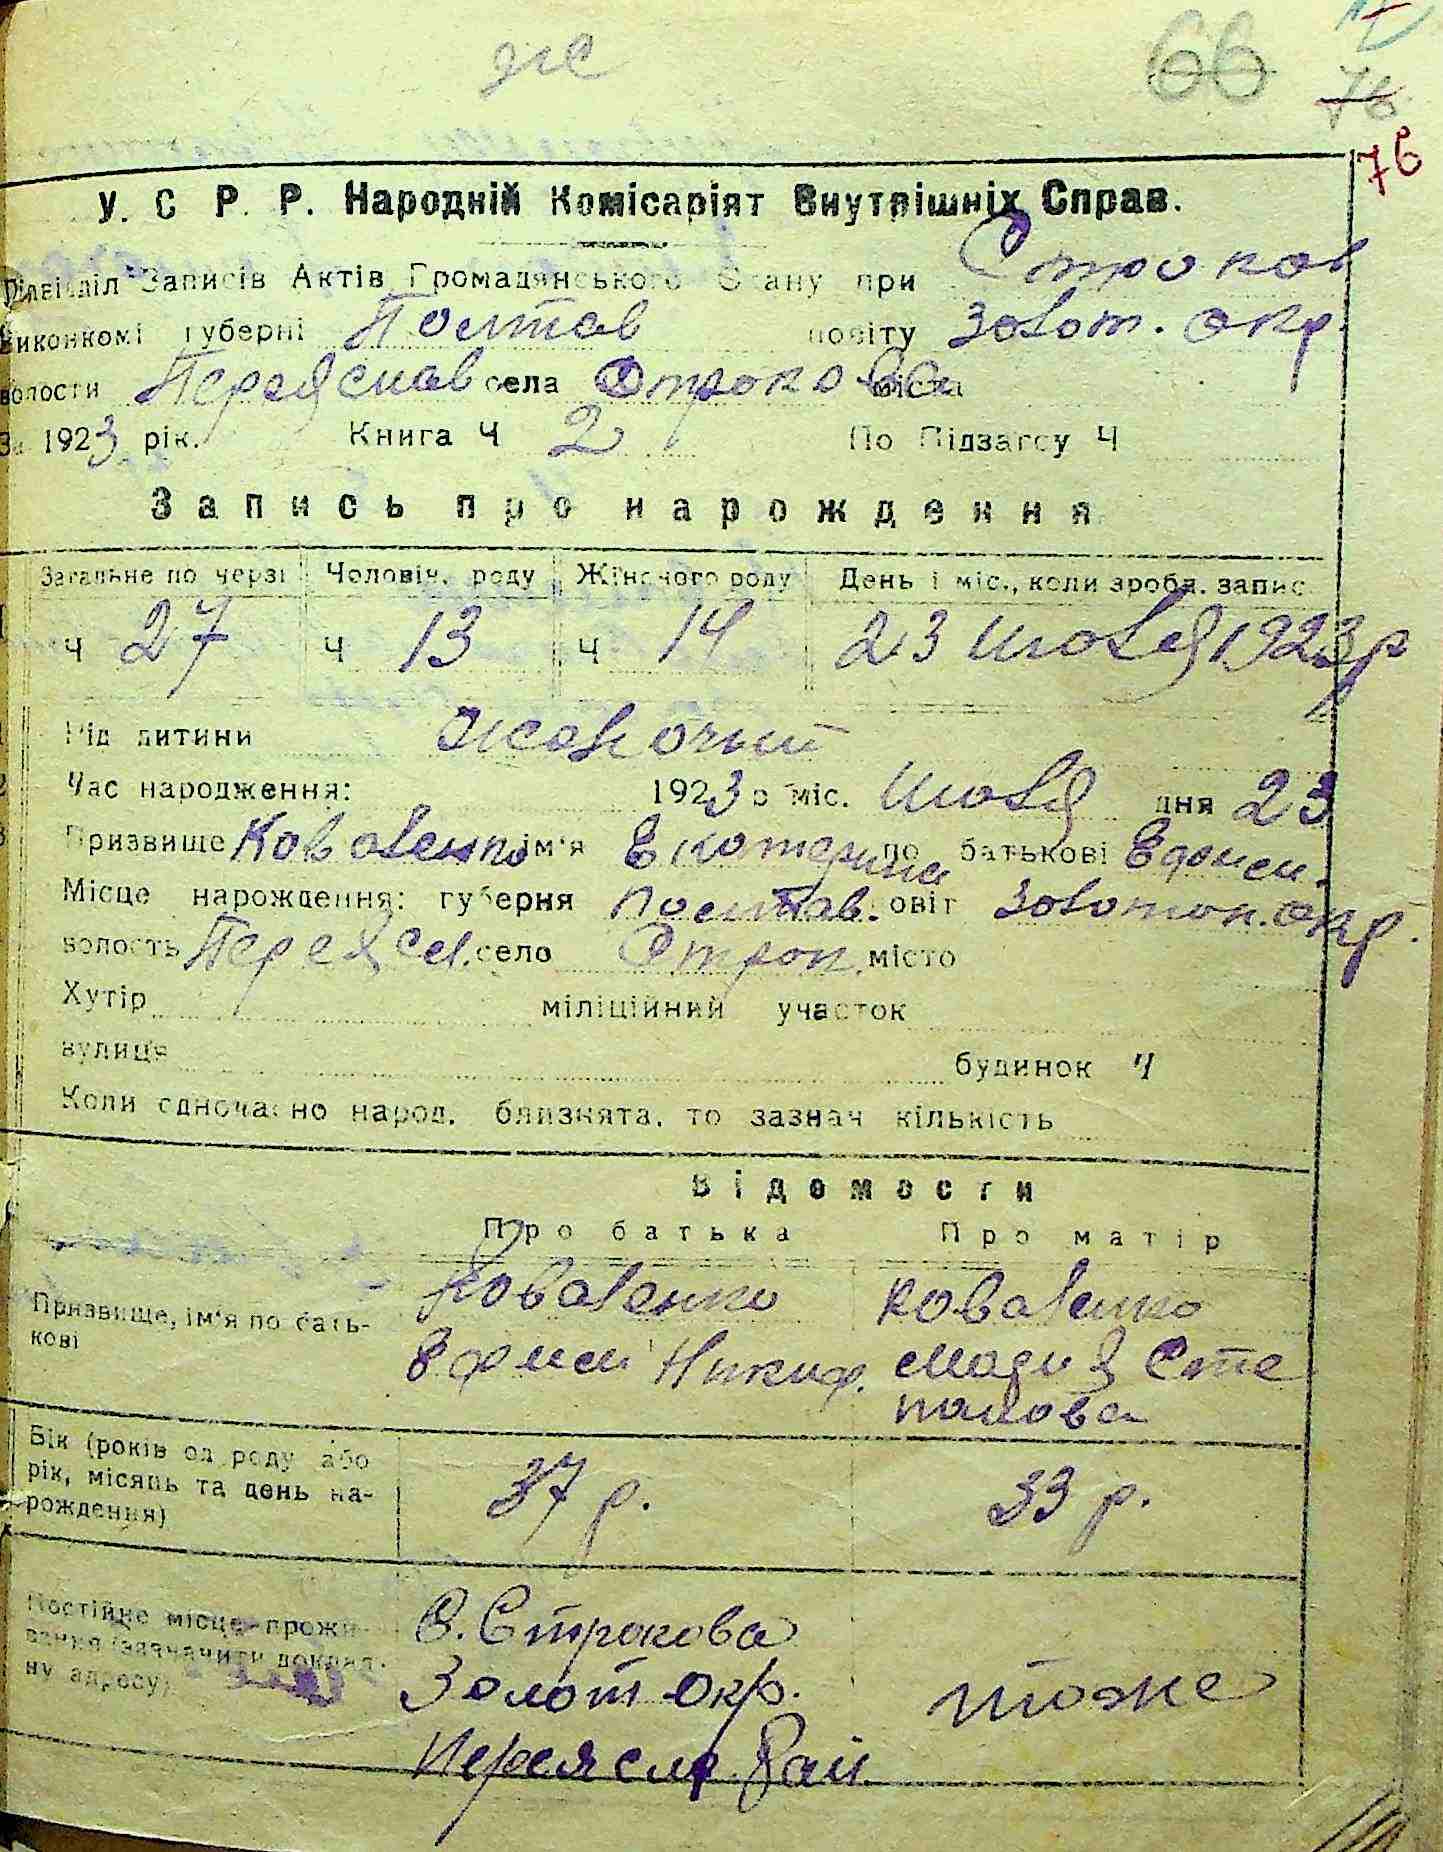 же
66
76
76
У. С. Р. Р. Народній Комісаріят Внутрішніх Справ.
Підвідділ Записів Актів Громадянського Стану при Строков
виконкомі губерні Полтав повіту Золот. окр.
волости Переяслав села Строкова міста
За 1923 рік. Книга Ч 2 По Підзагсу Ч
Запись про нарождення
Загальне по черзі Чоловіч. роду Жіночого роду День і міс., коли зробл. запис
Ч 27 Ч 13 Ч 14 23 июля 1923 р
Рід дитини женочий
Час народження: 1923 р міс. июля дня 23
Призвище Коваленко ім'я Екатерина по батькові Ефим.
Місце нарождення: губерня Полтав. повіт Золотон. окр.
волость Переясл. село Строк. місто
Хутір міліційний участок
вулиця будинок Ч
Коли одночасно народ. близнята, то зазнач кількість
Відомости
Про батька Про матір
Призвище, ім'я по бать-
кові
Коваленко Коваленко
Ефим Никиф. Мария Сте
панова
Вік (років од роду або
рік, місяць та день на-
рождення)
37 р. 33 р.
Постійне місце прожи-
вання (зазначити доклад-
ну адресу)
С. Строкова
Золот окр. тоже
Переясл. Рай.